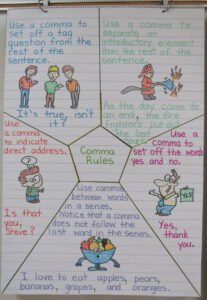 Use a comma to
set off a tag
question from the
rest of the
sentence.
It's true, isn't
it?
Use a comma to
separate an
introductory element
from the rest of the
sentence.
As the day came to
an end, the fire
fighters put out
the last
spark.
Use
a comma
to indicate
direct address.
Is that
you,
Steve?
Comma
Rules
Use a
comma to
set off the words
yes and no.
YES
Yes,
thank
you.
Use commas
between words
in a series.
Notice that a comma
does not follow the
last word in the series.
I love to eat apples, pears,
bananas, grapes, and oranges.